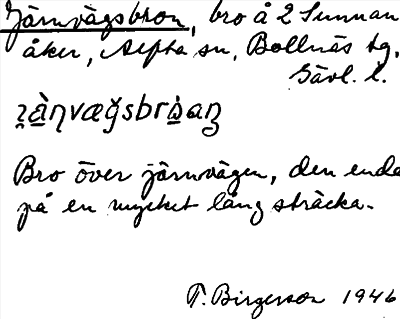 Järnvägsbron, bro å 2 Sunnan
åker, Alfta sn, Bollnäs tg.
Gävl. l.
Bro över järnvägen, den enda
på en mycket lång sträcka.
T. Birgerson 1946